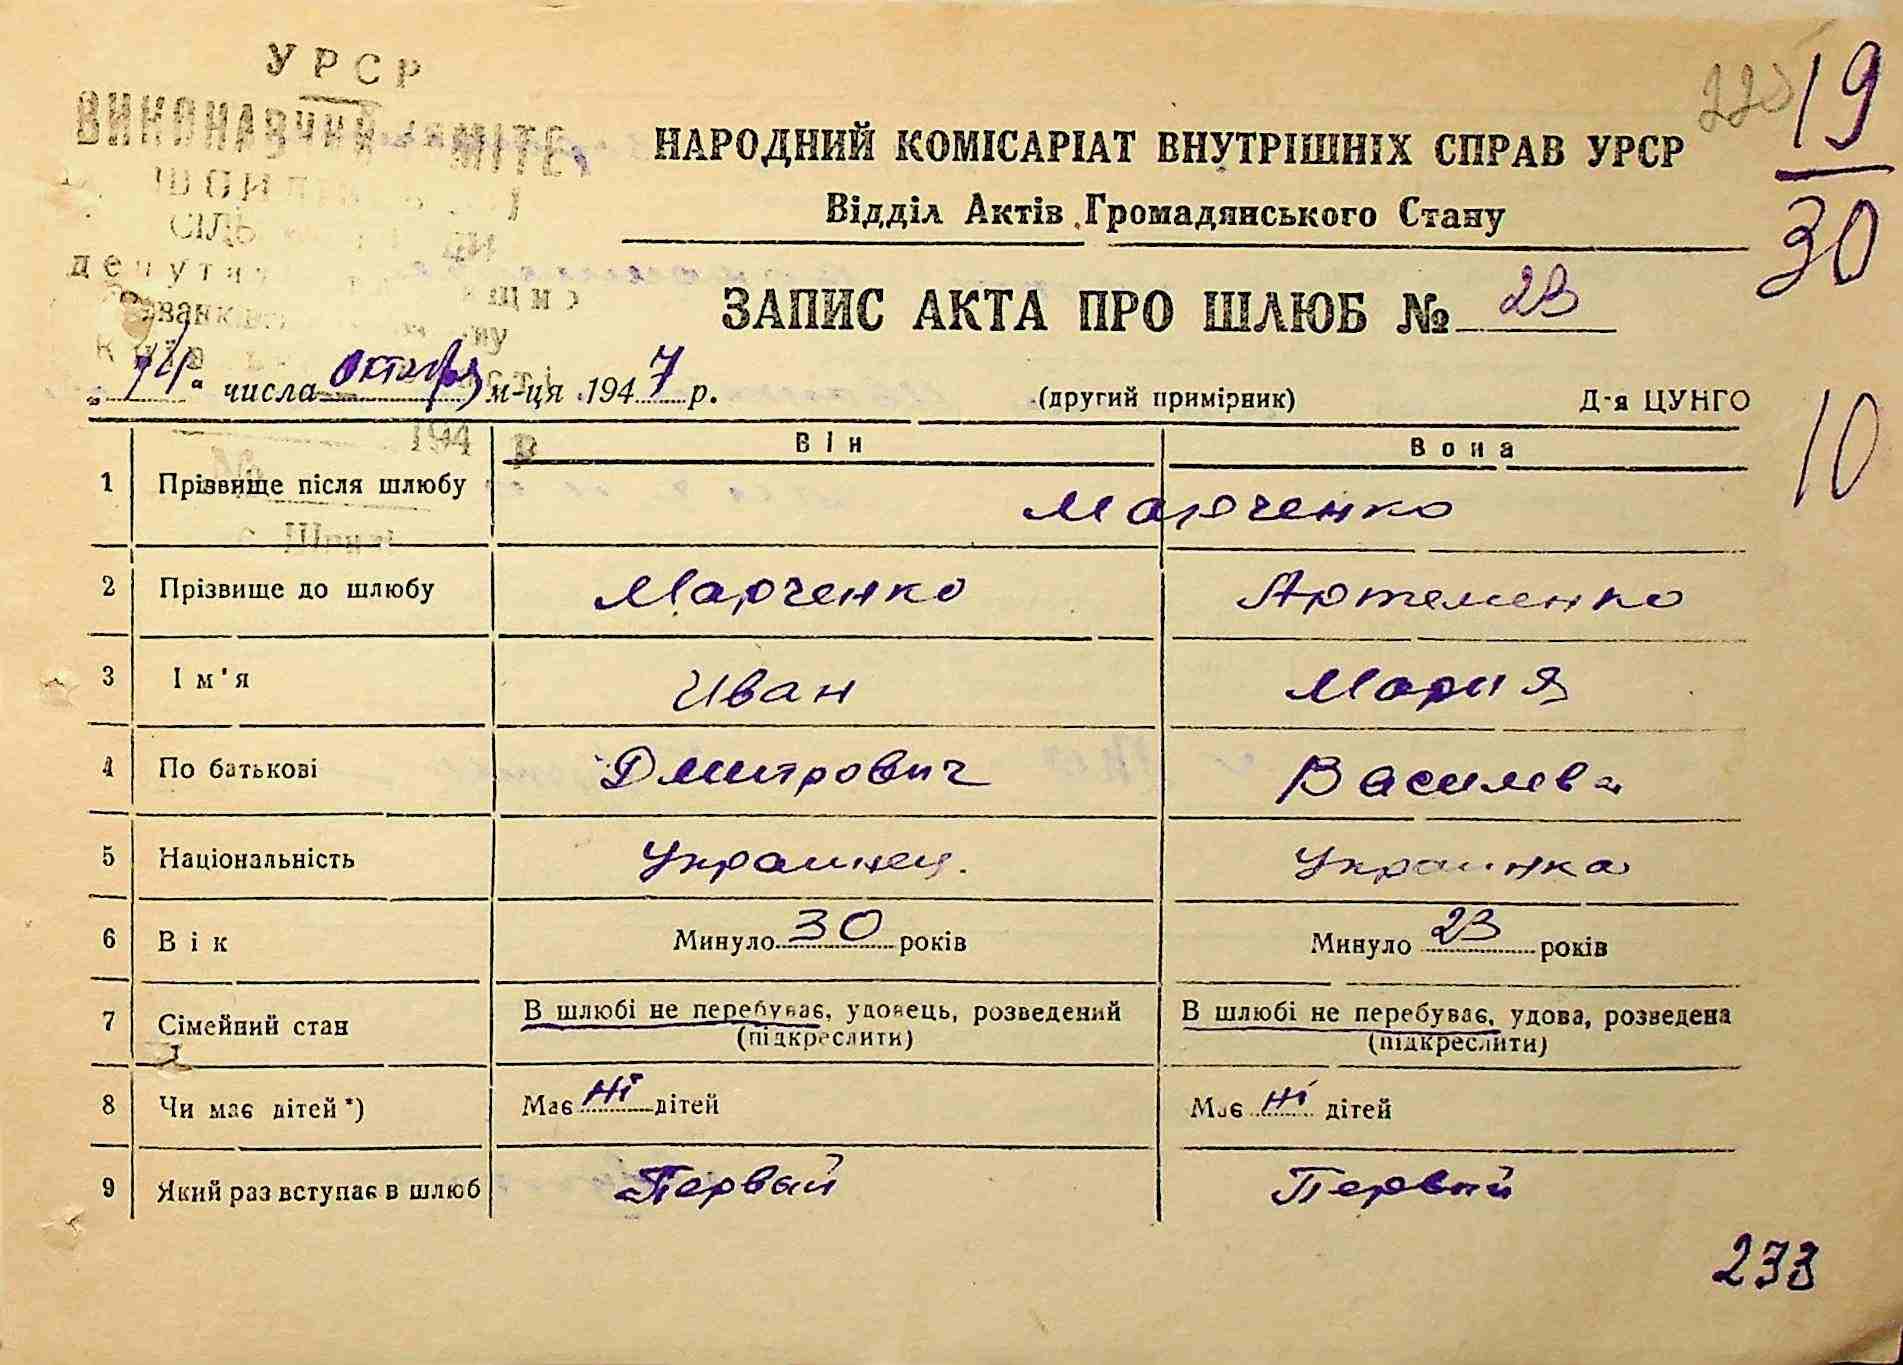 УРСР
ВИКОНАВЧИЙ
НАРОДНИЙ КОМІСАРІАТ ВНУТРІШНІХ СПРАВ УРСР
Відділ Актів Громадянського Стану
19
30
ЗАПИС АКТА ПРО ШЛЮБ № 23
числа октября м-ця 1947 р.
(другий примірник)
Д-я ЦУНГО
10
194 р
Він
Вона
1 Прізвище після шлюбу Марченко
2 Прізвище до шлюбу Марченко Артеменко
3 Ім'я Иван Мария
4 По батькові Дмитрович Василева
5 Національність Украинец. Украинка
6 Вік Минуло 30 років Минуло 23 років
7 Сімейний стан В шлюбі не перебуває, удовець, розведений В шлюбі не перебуває, удова, розведена
(підкреслити) (підкреслити)
8 Чи має дітей *) Має ні дітей Має ні дітей
9 Який раз вступає в шлюб Первый Первый
233